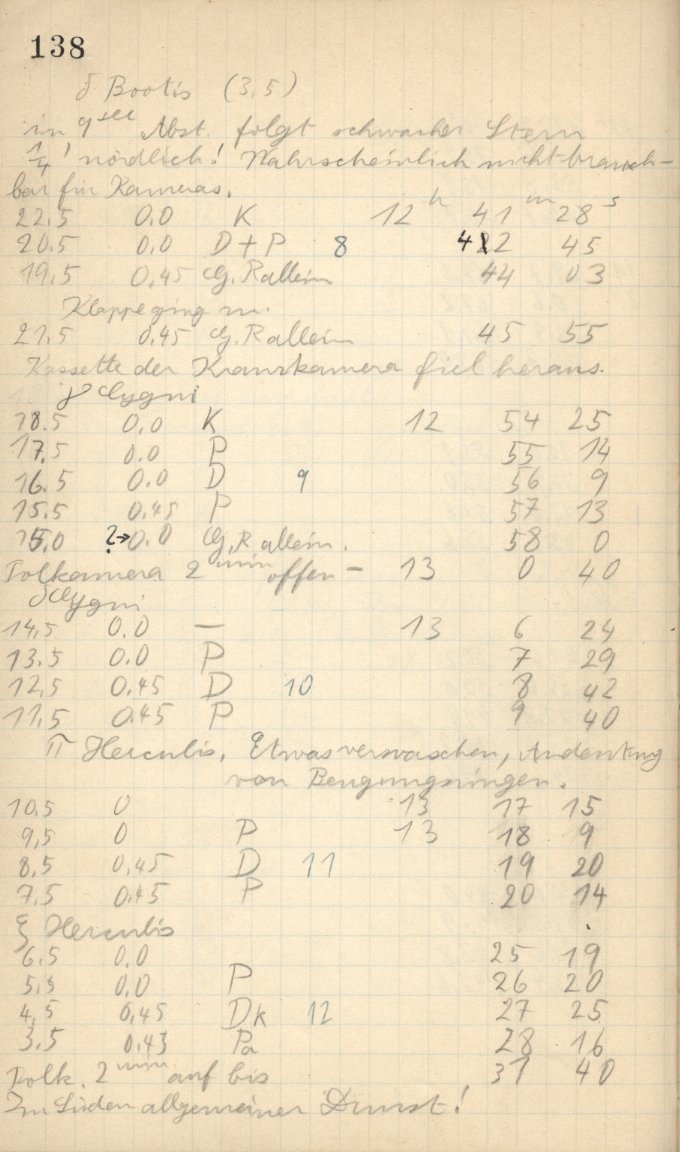 138
δ Bootis (3,5)
in 9 sec Abst. folgt schwacher Stern
1/4' nördlich! Wahrscheinlich nicht brauch-
bar für Kameras.
22,5 0.0 K 12 h 41 m 28 s
20.5 0.0 D + P 8 42 45
19,5 0,45 G.R allein 44 03
Klappe ging zu.
21,5 0,45 G.R allein 45 55
Kassette der Kranzkamera fiel heraus.
γ Cygni
18.5 0.0 K 12 54 25
17,5 0.0 P 55 14
16.5 0.0 D 9 56 9
15.5 0.45 P 57 13
15,0 ?→0.0 G,R allein. 58 0
Polkamera 2 min offen – 13 0 40
δ Cygni
14,5 0.0 — 13 6 24
13.5 0.0 P 7 29
12,5 0,45 D 10 8 42
11,5 0.45 P 9 40
π Herculis, Etwas verwaschen, Andeutung
von Beugungsringen.
10.5 0 13 17 15
9,5 0 P 13 18 9
8,5 0,45 D 11 19 20
7,5 0,45 P 20 14
ξ Herculis
6.5 0.0 25 19
5,5 0,0 P 26 20
4,5 0,45 Dk 12 27 25
3.5 0.43 Pa 28 16
Polk. 2 min auf bis 31 40
Im Süden allgemeiner Dunst!